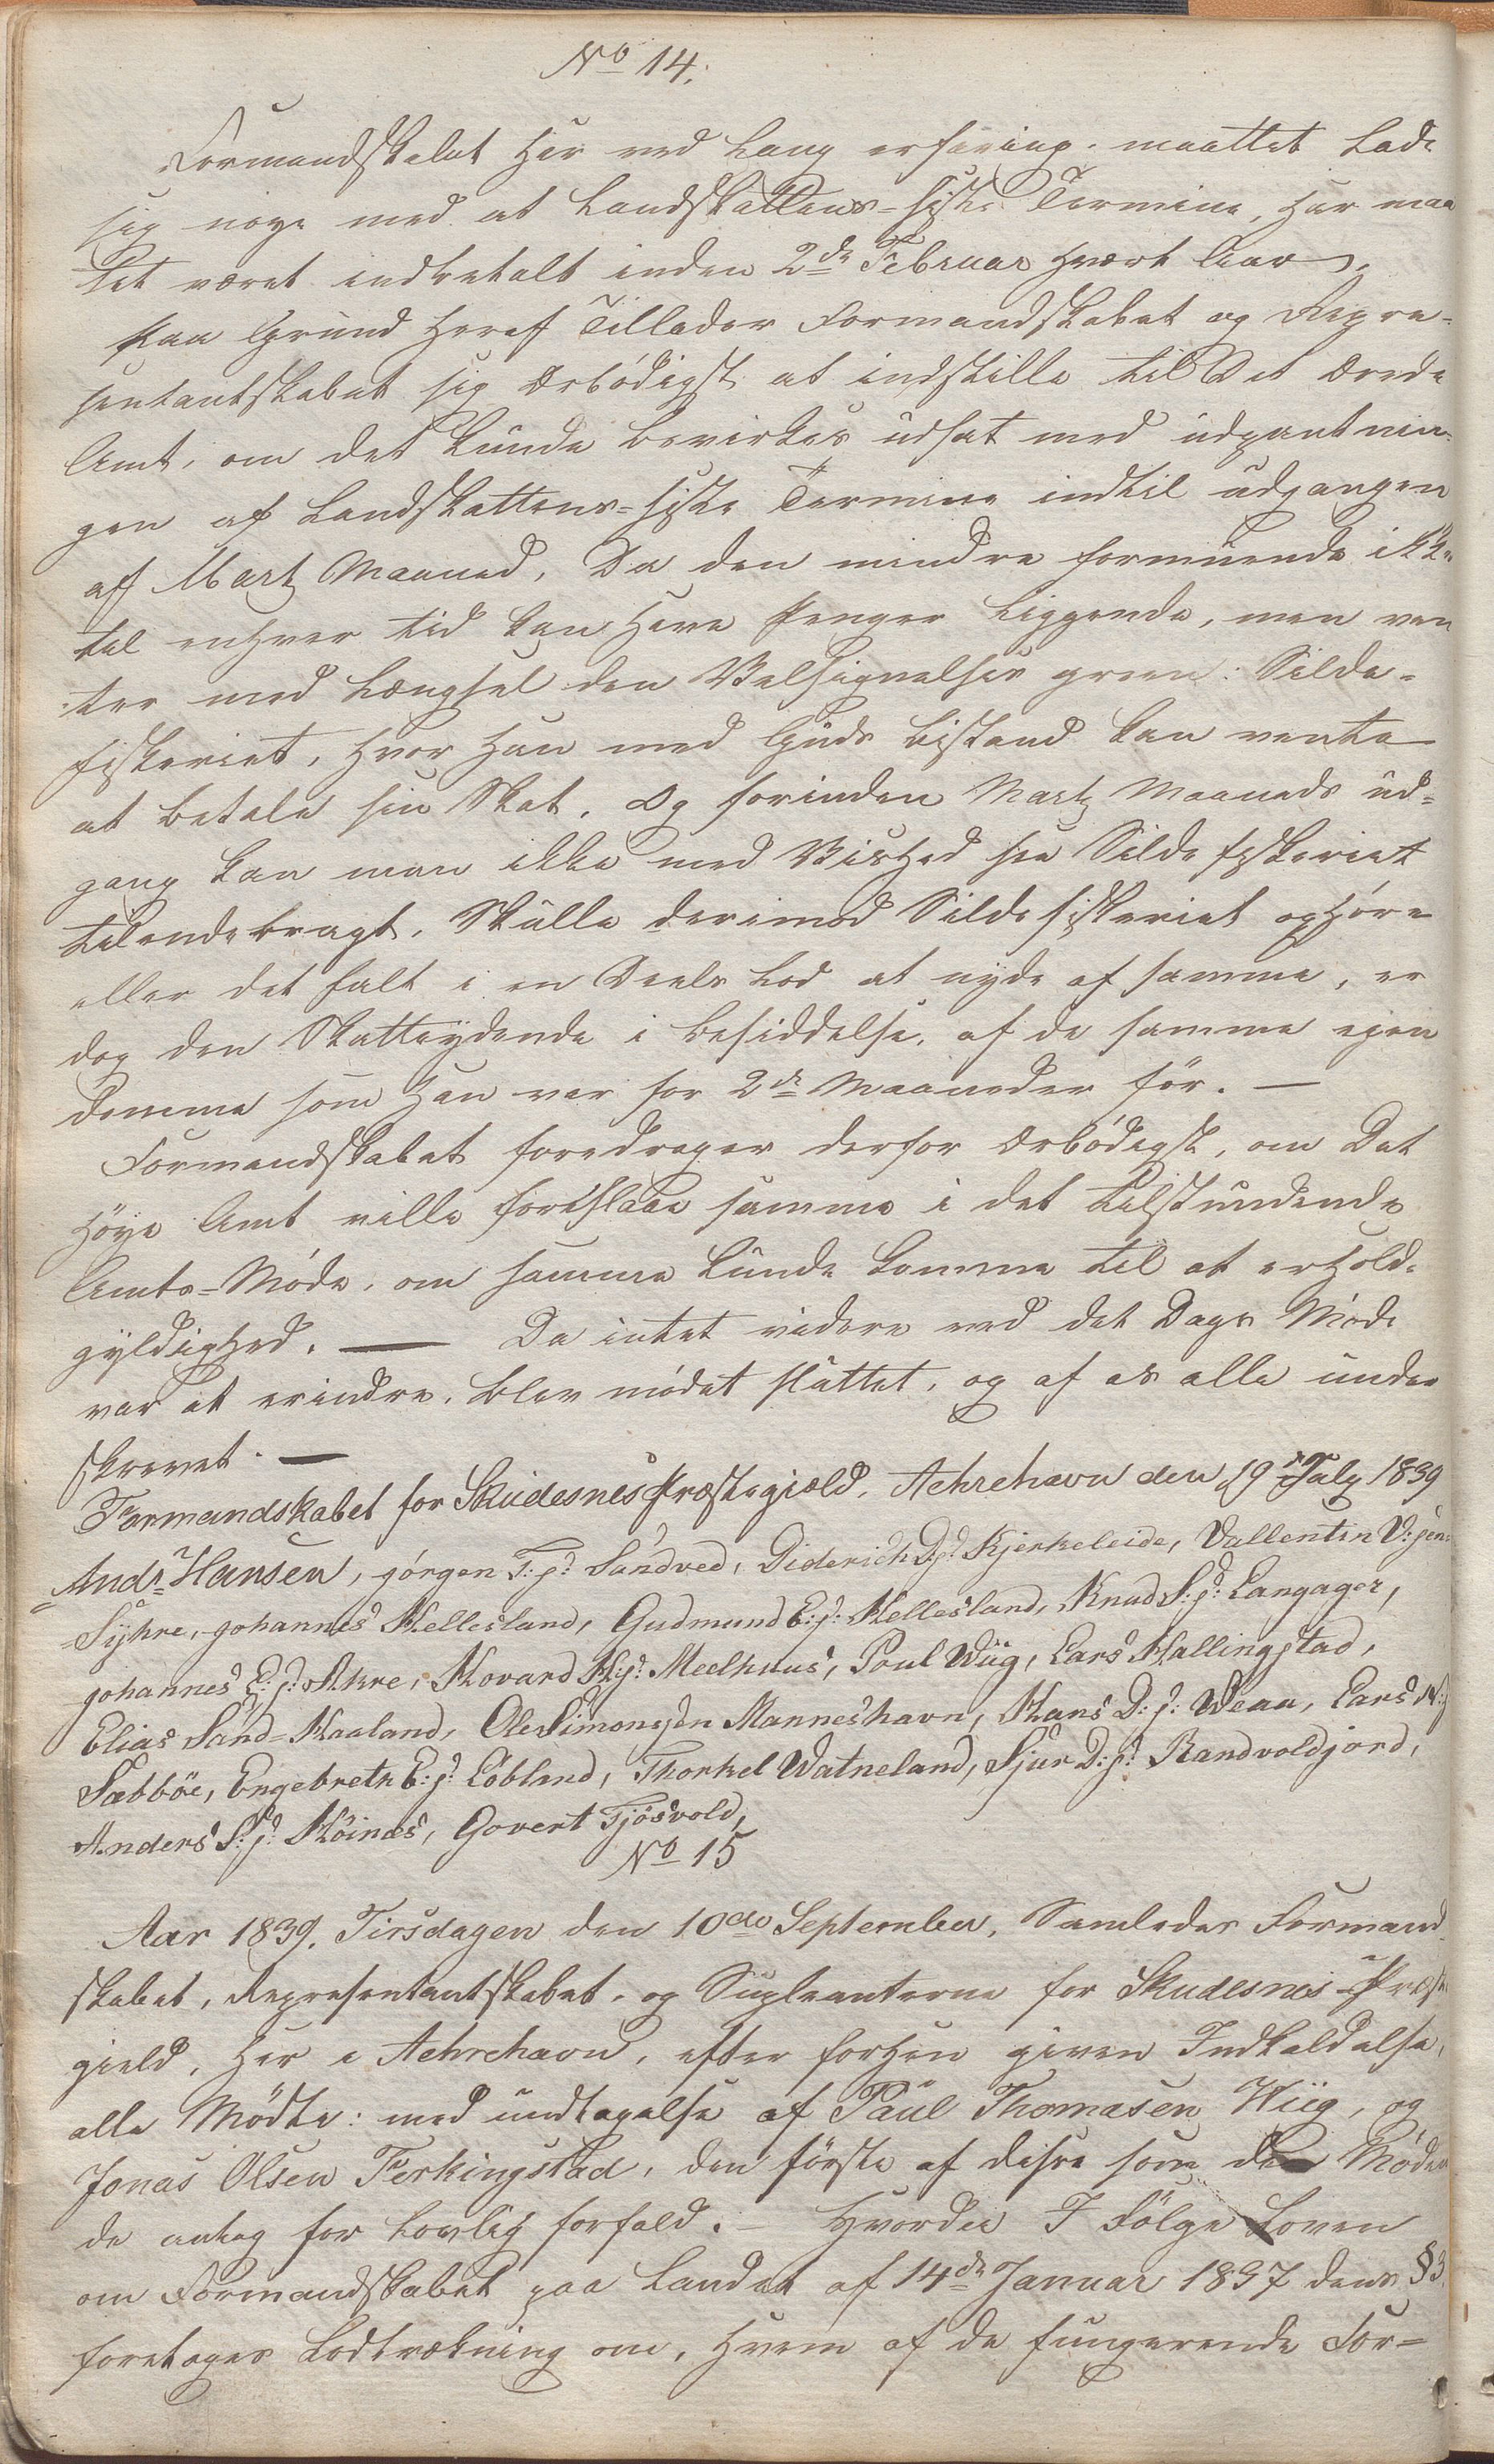 No 14.
Formandskabet har ved lang erfaring maattet lade
sig nøye med at Landskattens-sidste Termine, har maa
tet været indbetalt inden 2de Februar hvert Aar.
Paa Grund heraf Tillader Formandskabet og Repre-
sentantskabet sig ærbødigst at indstille til Det ærede
Amt, om det kunde bevirkes udsat med udpantnin-
gen af Landskattens-sidste Termine indtil udgangen
af Martz Maaned, Da den mindre formuende ikke
til enhver tid kan have Penger liggende, men ven
ter med Længsel den Velsignelses green: Silde-
fiskeriet, hvor han med Guds bistand kan vente
at betale sin Skat. Og forinden Martz Maaneds ud-
gang kan man ikke med Vished see Silde fiskeriet
tilendebragt. Skulle derimod Silde fiskeriet ophøre
eller det falt i en Deels Lod at nyde af samme, er
dog den Skatteydende i besiddelse, af de samme ejen
domme som han var for 2de Maaneder før. —
Formandskabet foredrager derfor ærbødigst, om Det
høye Amt ville foreslaae samme i det tilstundende
Amts-Møde, om samme kunde komme til at erholde
gyldighed. — Da intet videre ved det Dags Møde
var at erindre, blev mødet sluttet, og af os alle under
skrevet. —
Formandskabet for Skudesnes Præstegiæld, Aehrehavn den 19de July 1839
Andr. Hansen, Jørgen T:s: Sandved, Diderich D:s: Kjerkeleide, Vallentin V:sen
Syhre, Johannes Hellesland, Gudmund E:s: Hellesland, Knud S:s: Langager,
Johannes E:s: Akre, Hovard H:s: Meelhuus, Poul Wiig, Lars Hallingstad,
Elias Sand-Haaland, Ole Simonsen Manneshavn, Hans D:s: Weaa, Lars N:s
Sæbböe, Engebreth E:s: Løbland, Thorkel Watneland, Sjur D:s: Sandvoldjord,
Anders S:s: Höinæs, Govert Fjösvold,
No 15
Aar 1839. Tirsdagen den 10de September, Samledes Formand
skabet, Representantskabet, og Supleanterne for Skudesnes Præste
gield, her i Aehrehavn, efter forhen given Indkaldelse,
alle Mödte: med undtagelse af Paul Thomasen Wiig, og
Jonas Olsen Ferkingstad, den förste af disse som de Möden
de antog for Lovlig forfald. — Hvordée I Fölge Loven
om Formandskabet paa Landet af 14de Januar 1837 dens § 3
foretoges Lodtrækning om, hvem af de fungerende For-